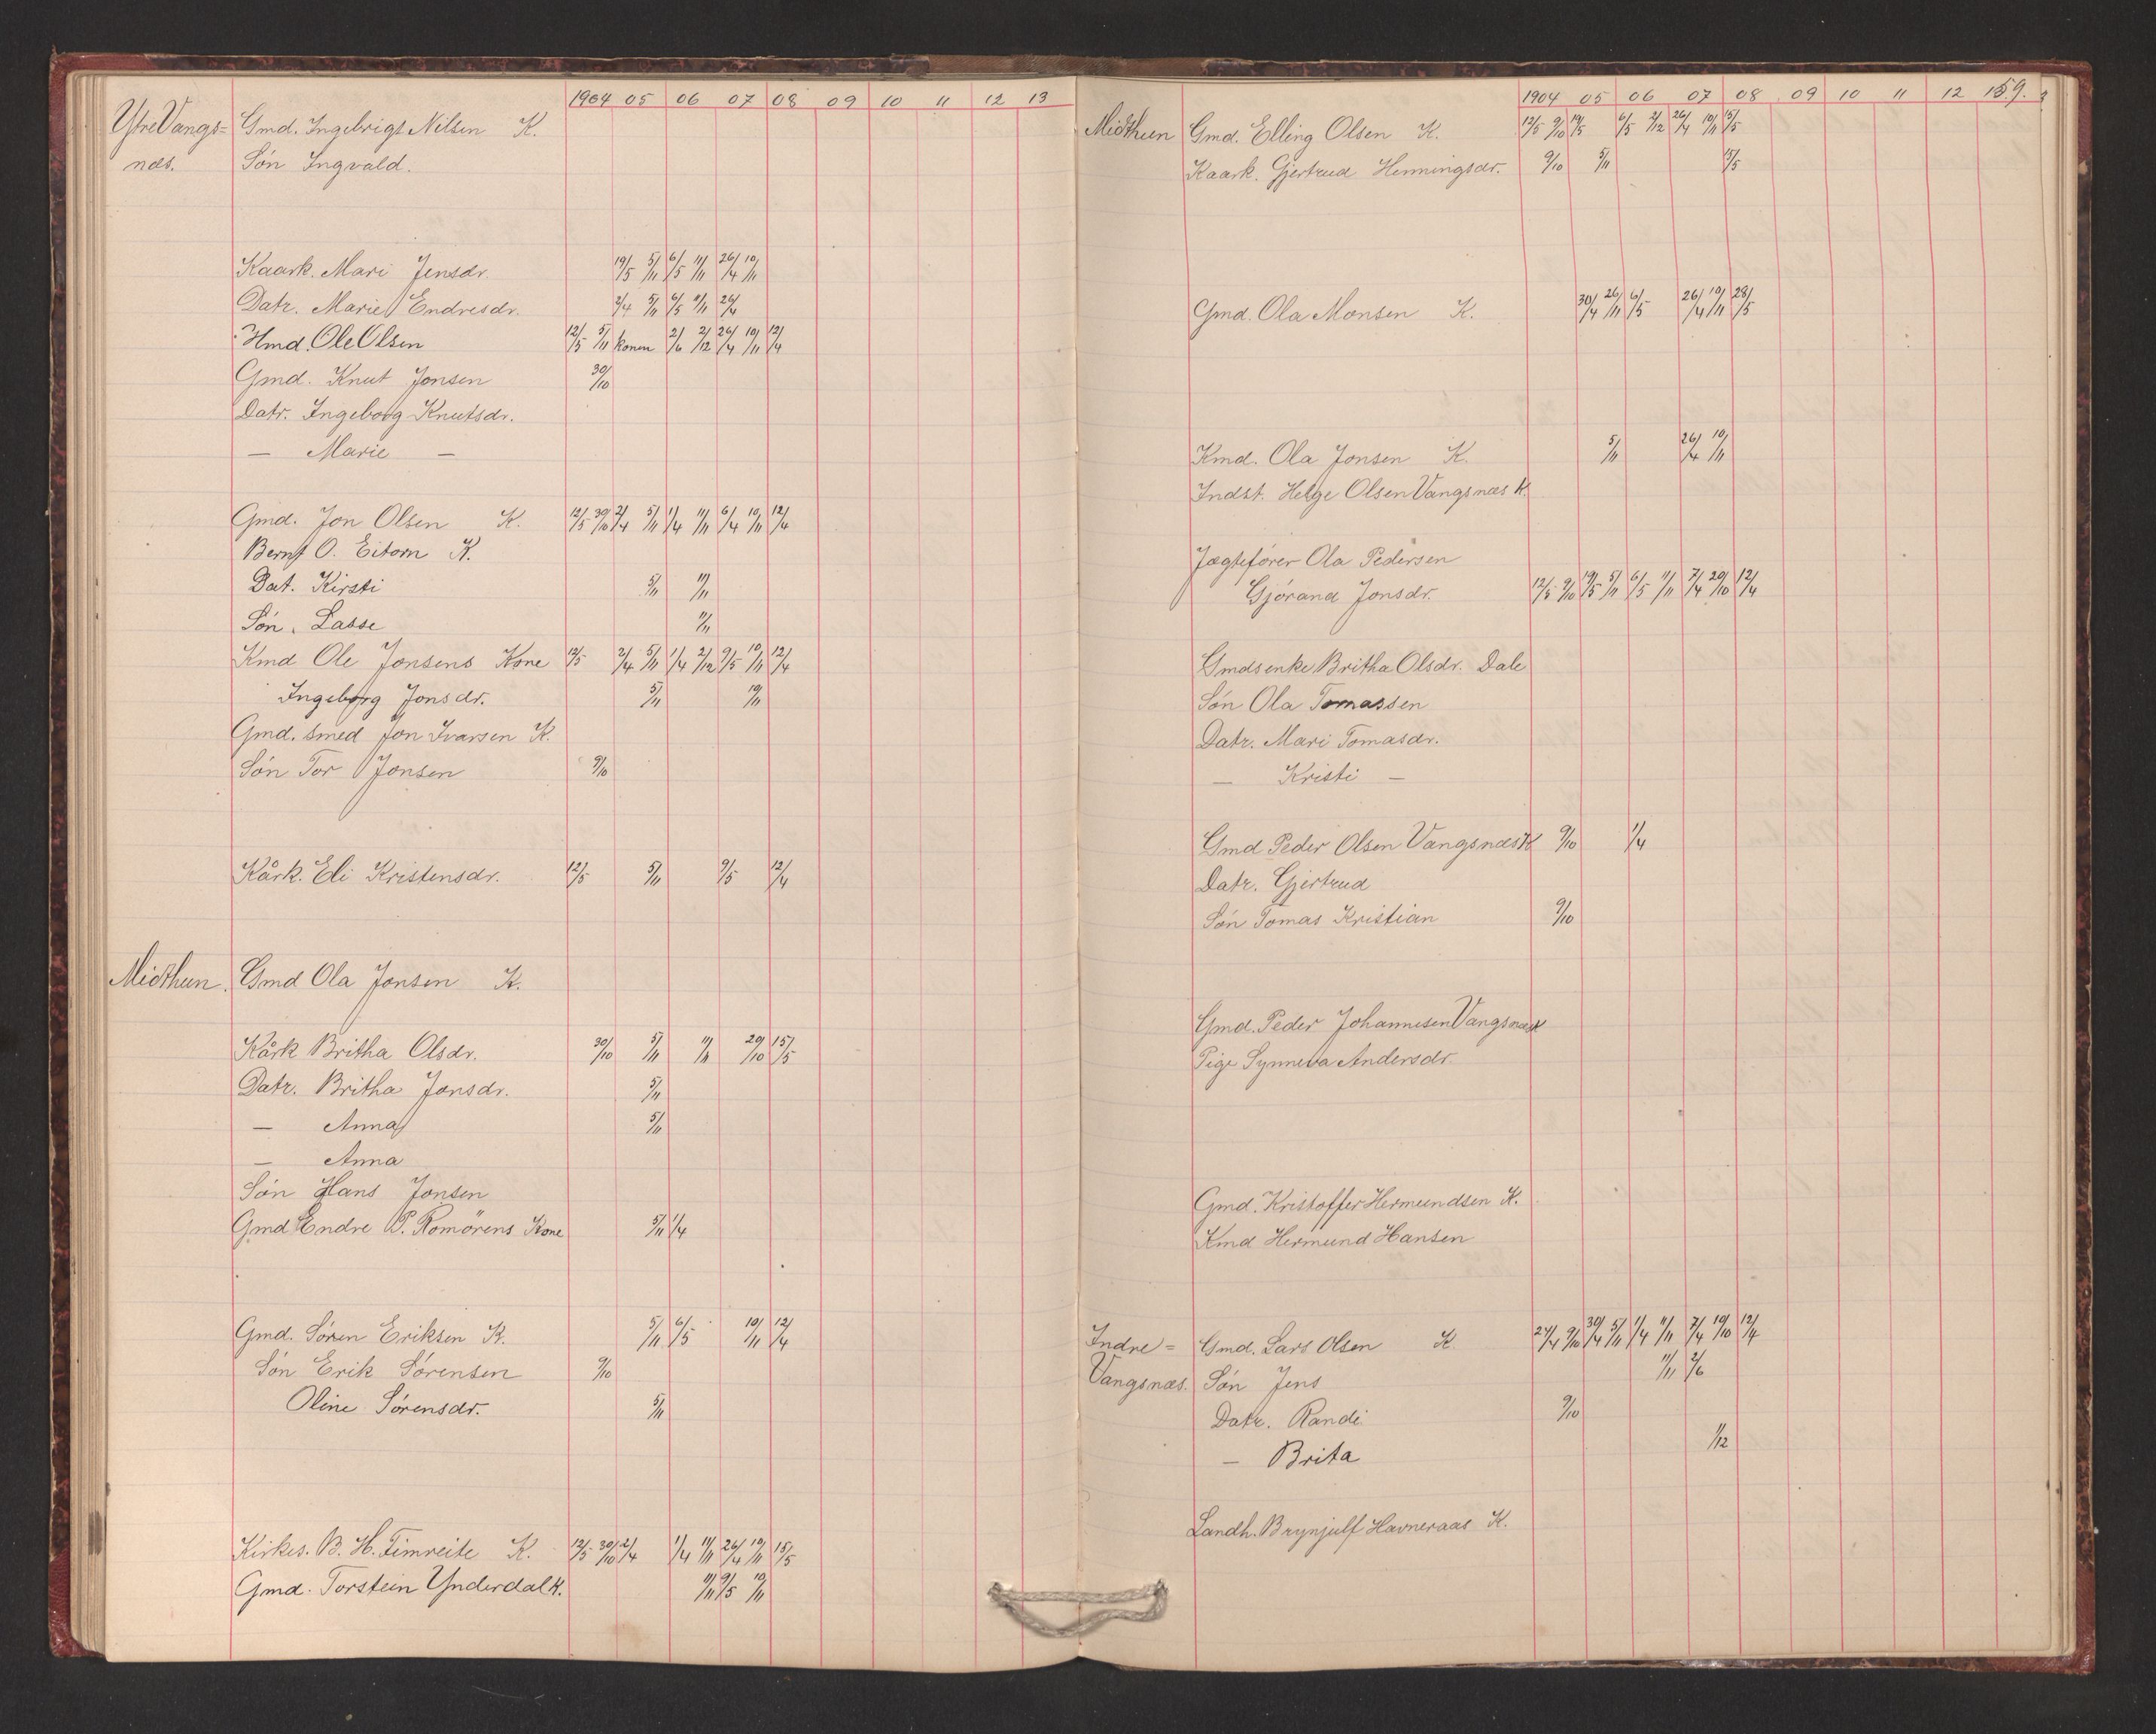 1904 05 06 07 08 09 10 11 12 13
Ytre Vangs= Gmd. Ingebrigt Nilsen K.
næs. Søn Ingvald.
Kaark. Mari Jensdr. 19/5 5/11 6/5 11/11 26/4 10/11
Datr. Marie Endresdr. 2/4 5/11 6/5 11/11 26/4
Hmd. Ole Olsen 12/5 5/11 konen 2/6 2/12 26/4 10/11 12/4
Gmd. Knut Jonsen 30/10
Datr. Ingeborg Knutsdr.
— Marie —
Gmd. Jon Olsen K. 12/5 30/10 2/4 5/11 1/4 11/11 6/4 10/11 12/4
Bernt O. Eitorn K.
Dat. Kirsti 5/11 11/11
Søn. Lasse 11/11
Kmd Ole Jonsens Kone 12/5 2/4 5/11 1/4 2/12 9/5 10/11 12/4
Ingeborg Jonsdr. 5/11 10/11
Gmd. smed Jon Ivarsen K.
Søn Tor Jonsen 9/10
Kårk. Eli Kristensdr. 12/5 5/11 9/5 12/4
Midthun. Gmd Ola Jonsen K.
Kårk Britha Olsdr. 30/10 5/11 11/11 20/10 15/5
Datr. Britha Jonsdr. 5/11
— Anna 5/11
— Anna
Søn Hans Jonsen
Gmd Endre P. Romörens Kone 5/11 1/4
Gmd. Sören Eriksen K. 5/11 6/5 10/11 12/4
Søn Erik Sørensen 9/10
Oline Sørensdr. 5/11
Kirkes. B. H. Fimreite K. 12/5 30/10 2/4 1/4 11/11 26/4 10/11 15/5
Gmd. Torstein Ynderdal K. 11/11 9/5 10/11
1904 05 06 07 08 09 10 11 12 13 59.
Midthun Gmd. Elling Olsen K. 12/5 9/10 19/5 6/5 2/12 26/4 10/11 15/5
Kaark. Gjertrud Henningsdr. 9/10 5/11 15/5
Gmd. Ola Monsen K. 30/4 26/11 6/5 26/4 10/11 28/5
Kmd. Ola Jonsen K. 5/11 26/4 10/11
Indst. Helge Olsen Vangsnæs K.
Jægtefører Ola Pedersen
Gjørand Jonsdr. 12/5 9/10 19/5 5/11 6/5 11/11 7/4 20/10 12/4
Gmdsenke Britha Olsdr. Dale
Søn Ola Tomassen
Datr. Mari Tomasdr.
— Kristi —
Gmd Peder Olsen Vangsnæs K 9/10 1/4
Datr. Gjertrud
Søn Tomas Kristian 9/10
Gmd. Peder Johannesen Vangsnæs K
Pige Synneva Andersdr.
Gmd. Kristoffer Hermundsen K.
Kmd Hermund Hansen
Indre= Gmd. Lars Olsen K 24/4 9/10 30/4 5/11 1/4 11/11 7/4 10/10 12/4
Vangsnæs. Søn Jens 11/11 2/6
Datr. Randi 9/10
— Brita 1/12
Landh. Brynjulf Havneraas K.